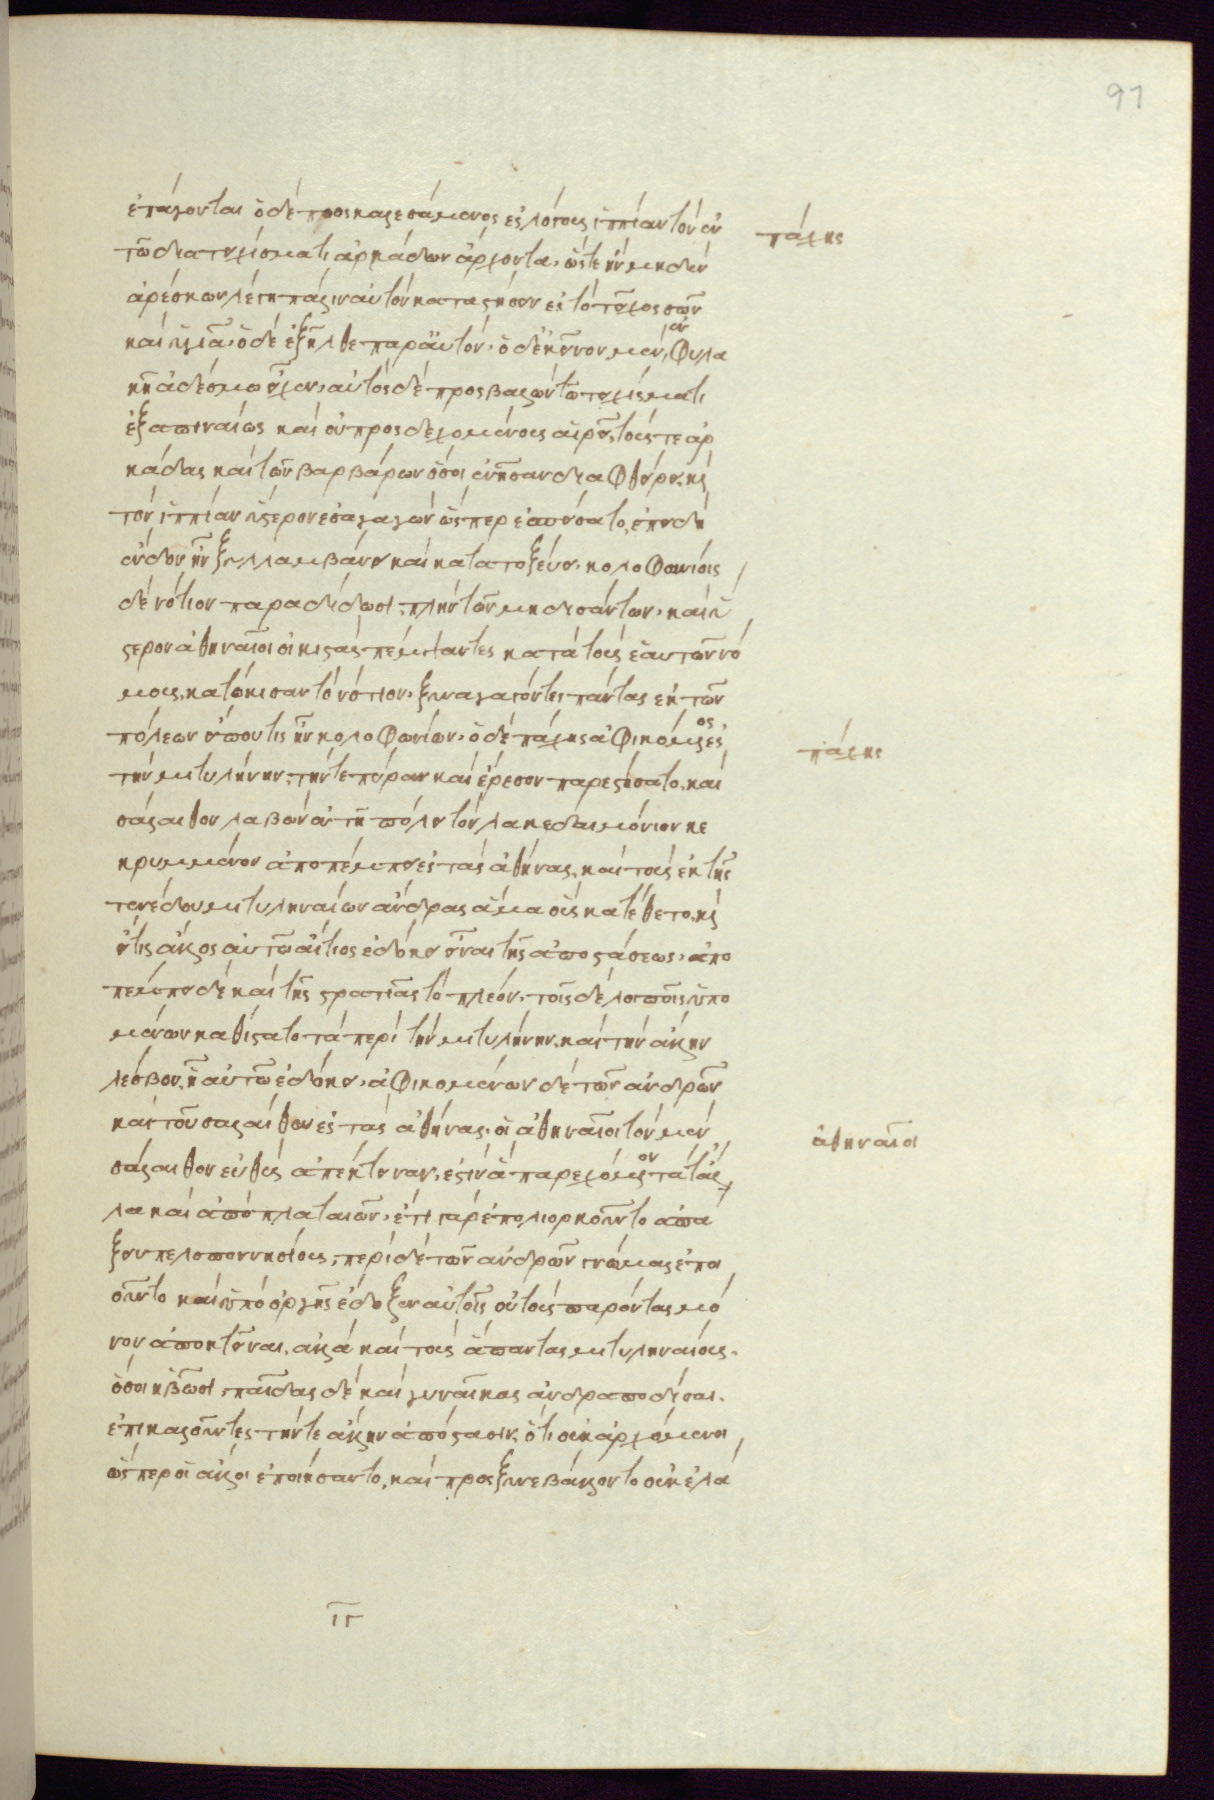 ἐπάγονται ὁ δὲ προσκαλεσάμενος ἐς λόγους ἱππίαν τὸν ἐν
τῶ διατειχίσματι ἀρκάδων ἄρχοντα, ὥστε ἢν μηδὲν
ἀρέσκων λέγη πάλιν αὐτὸν καταστήσειν ἐς τὸ τεῖχος σῶν
καὶ ὑγιᾶ. ὁ δὲ ἐξῆλθε παρ' αὐτόν. ὁ δ' ἐκεῖνον μὲν, ἐν φυλα
κῆ ἀδέσμω εἶχεν. αὐτὸς δὲ προσβαλὼν τῶ τειχίσματι
ἐξαπιναίως καὶ οὐ προσδεχομένους αἱρεῖ, τούς τε ἀρ
κάδας καὶ τῶν βαρβάρων ὅσοι ἐνῆσαν διαφθείρει. καὶ
τὸν ἱππίαν ὕστερον ἐσαγαγὼν ὥσπερ ἐσπείσατο, ἐπειδὴ
ἔνδον ἦν ξυλλαμβάνει καὶ κατατοξεύει. κολοφωνίοις
δὲ νότιον παραδίδωσι, πλὴν τῶν μηδισάντων. καὶ ὕ
στερον ἀθηναῖοι οἰκιστὰς πέμψαντες κατὰ τοὺς ἑαυτῶν νό
μους, κατώκισαν τὸ νότιον. ξυναγαγόντες πάντας ἐκ τῶν
πόλεων εἴ που τις ἦν κολοφωνίων. ὁ δὲ πάχης ἀφικόμενος ἐς
τὴν μιτυλήνην, τήν τε πύρραν καὶ ἔρεσον παρεστήσατο. καὶ
σάλαιθον λαβὼν ἐν τῆ πόλει τὸν λακεδαιμόνιον κε
κρυμμένον ἀποπέμπει ἐς τὰς ἀθήνας. καὶ τοὺς ἐκ τῆς
τενέδου μιτυληναίων ἄνδρας ἅμα οὓς κατέθετο. καὶ
εἴ τις ἄλλος αὐτῶ αἴτιος ἐδόκει εἶναι τῆς ἀποστάσεως. ἀπο
πέμπει δὲ καὶ τῆς στρατιᾶς τὸ πλέον. τοῖς δὲ λοιποῖς ὑπο
μένων καθίστατο τὰ περὶ τὴν μιτυλήνην, καὶ τὴν ἄλλην
λέσβον, ἧ αὐτῶ ἐδόκει. ἀφικομένων δὲ τῶν ἀνδρῶν
καὶ τοῦ σαλαίθου ἐς τὰς ἀθήνας. οἱ ἀθηναῖοι τὸν μὲν
σάλαιθον εὐθὺς ἀπέκτειναν. ἔστιν ἃ παρεχόμενον τά τ' ἄλ
λα καὶ ἀπὸ πλαταιῶν. ἔτι γὰρ ἐπολιορκοῦντο ἀπά
ξειν πελοποννησίους. περὶ δὲ τῶν ἀνδρῶν γνώμας ἐποι
οῦντο καὶ ὑπὸ ὀργῆς ἔδοξεν αὐτοῖς οὐ τοὺς παρόντας μό
νον ἀποκτεῖναι. ἀλλὰ καὶ τοὺς ἅπαντας μιτυληναίους.
ὅσοι ἡβῶσι. παῖδας δὲ καὶ γυναῖκας ἀνδραποδίσαι.
ἐπικαλοῦντες τήν τε ἄλλην ἀπόστασιν, ὅτι οὐκ ἀρχόμενοι,
ὥσπερ οἱ ἄλλοι ἐποιήσαντο, καὶ προσξυνεβάλλοντο οὐκ ἐλά
πάχης
πάχης
ἀθηναῖοι
ιγ
91